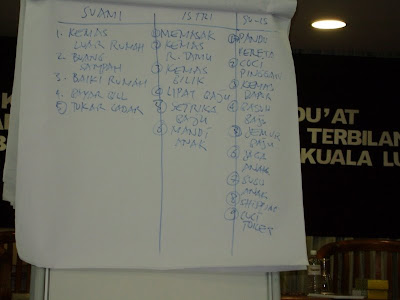 SUAMI
1. KEMAS
LUAR RUMAH
2. BUANG
SAMPAH
3. BAIKI RUMAH
4. BAYAR BILL
5) TUKAR CADAR
ISTERI
① MEMASAK
② KEMAS
R. TAMU
③ KEMAS
BILIK
④ LIPAT BAJU
⑤ SETRIKA
BAJU
⑥ MANDI
ANAK
① PANDU
KERETA
② CUCI
PINGGAN
③ KEMAS
DAPUR
④ BASUH
BAJU
⑤ JEMUR
BAJU
⑥ JAGA
ANAK
⑦ SUSU
ANAK
⑧ SHOPPING
⑨ CUCI
TOILET
DU'AT
TERBILAN
KUALA LU